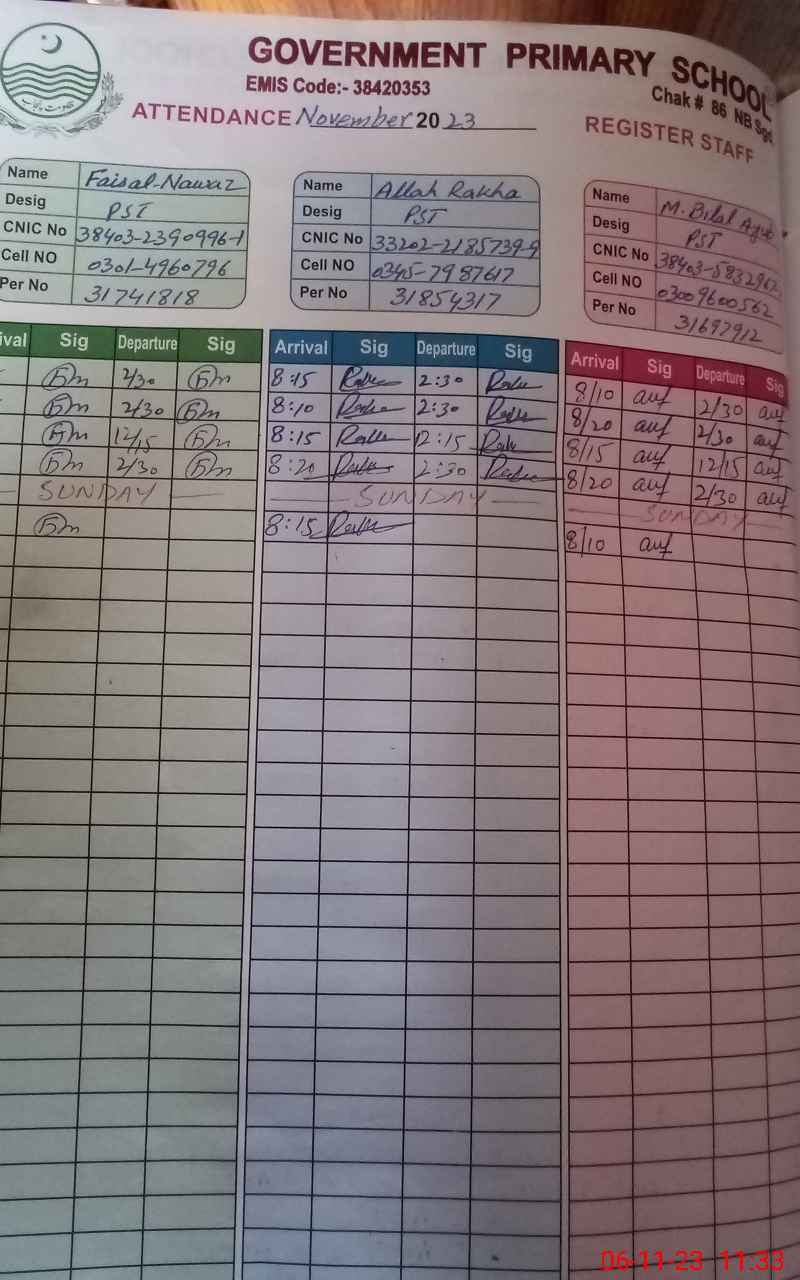 GOVERNMENT PRIMARY SCHOOL
EMIS Code:- 38420353
Chak # 86 NB Sgd
ATTENDANCE November 2023
REGISTER STAFF
حکومت پنجاب
Name Faisal Nawaz
Desig PST
CNIC No 38403-2390996-1
Cell NO 0301-4960796
Per No 31741818
Name Allah Rakha
Desig PST
CNIC No 33202-2185739-9
Cell NO 0345-7987617
Per No 31854317
Name M. Bilal
Desig PST
CNIC No 38403-5832962
Cell NO 03009600562
Per No 31697912
ival Sig Departure Sig
2/30
2/30
12/15
2/30
SUNDAY
Arrival Sig Departure Sig
8:15 2:30
8:10 2:30
8:15 12:15
8:20 2:30
SUNDAY
8:15
Arrival Sig Departure Sig
8/10 auf 2/30 auf
8/20 auf 2/30 auf
8/15 auf 12/15 auf
8/20 auf 2/30 auf
SUNDAY
8/10 auf
06-11-23 11:33